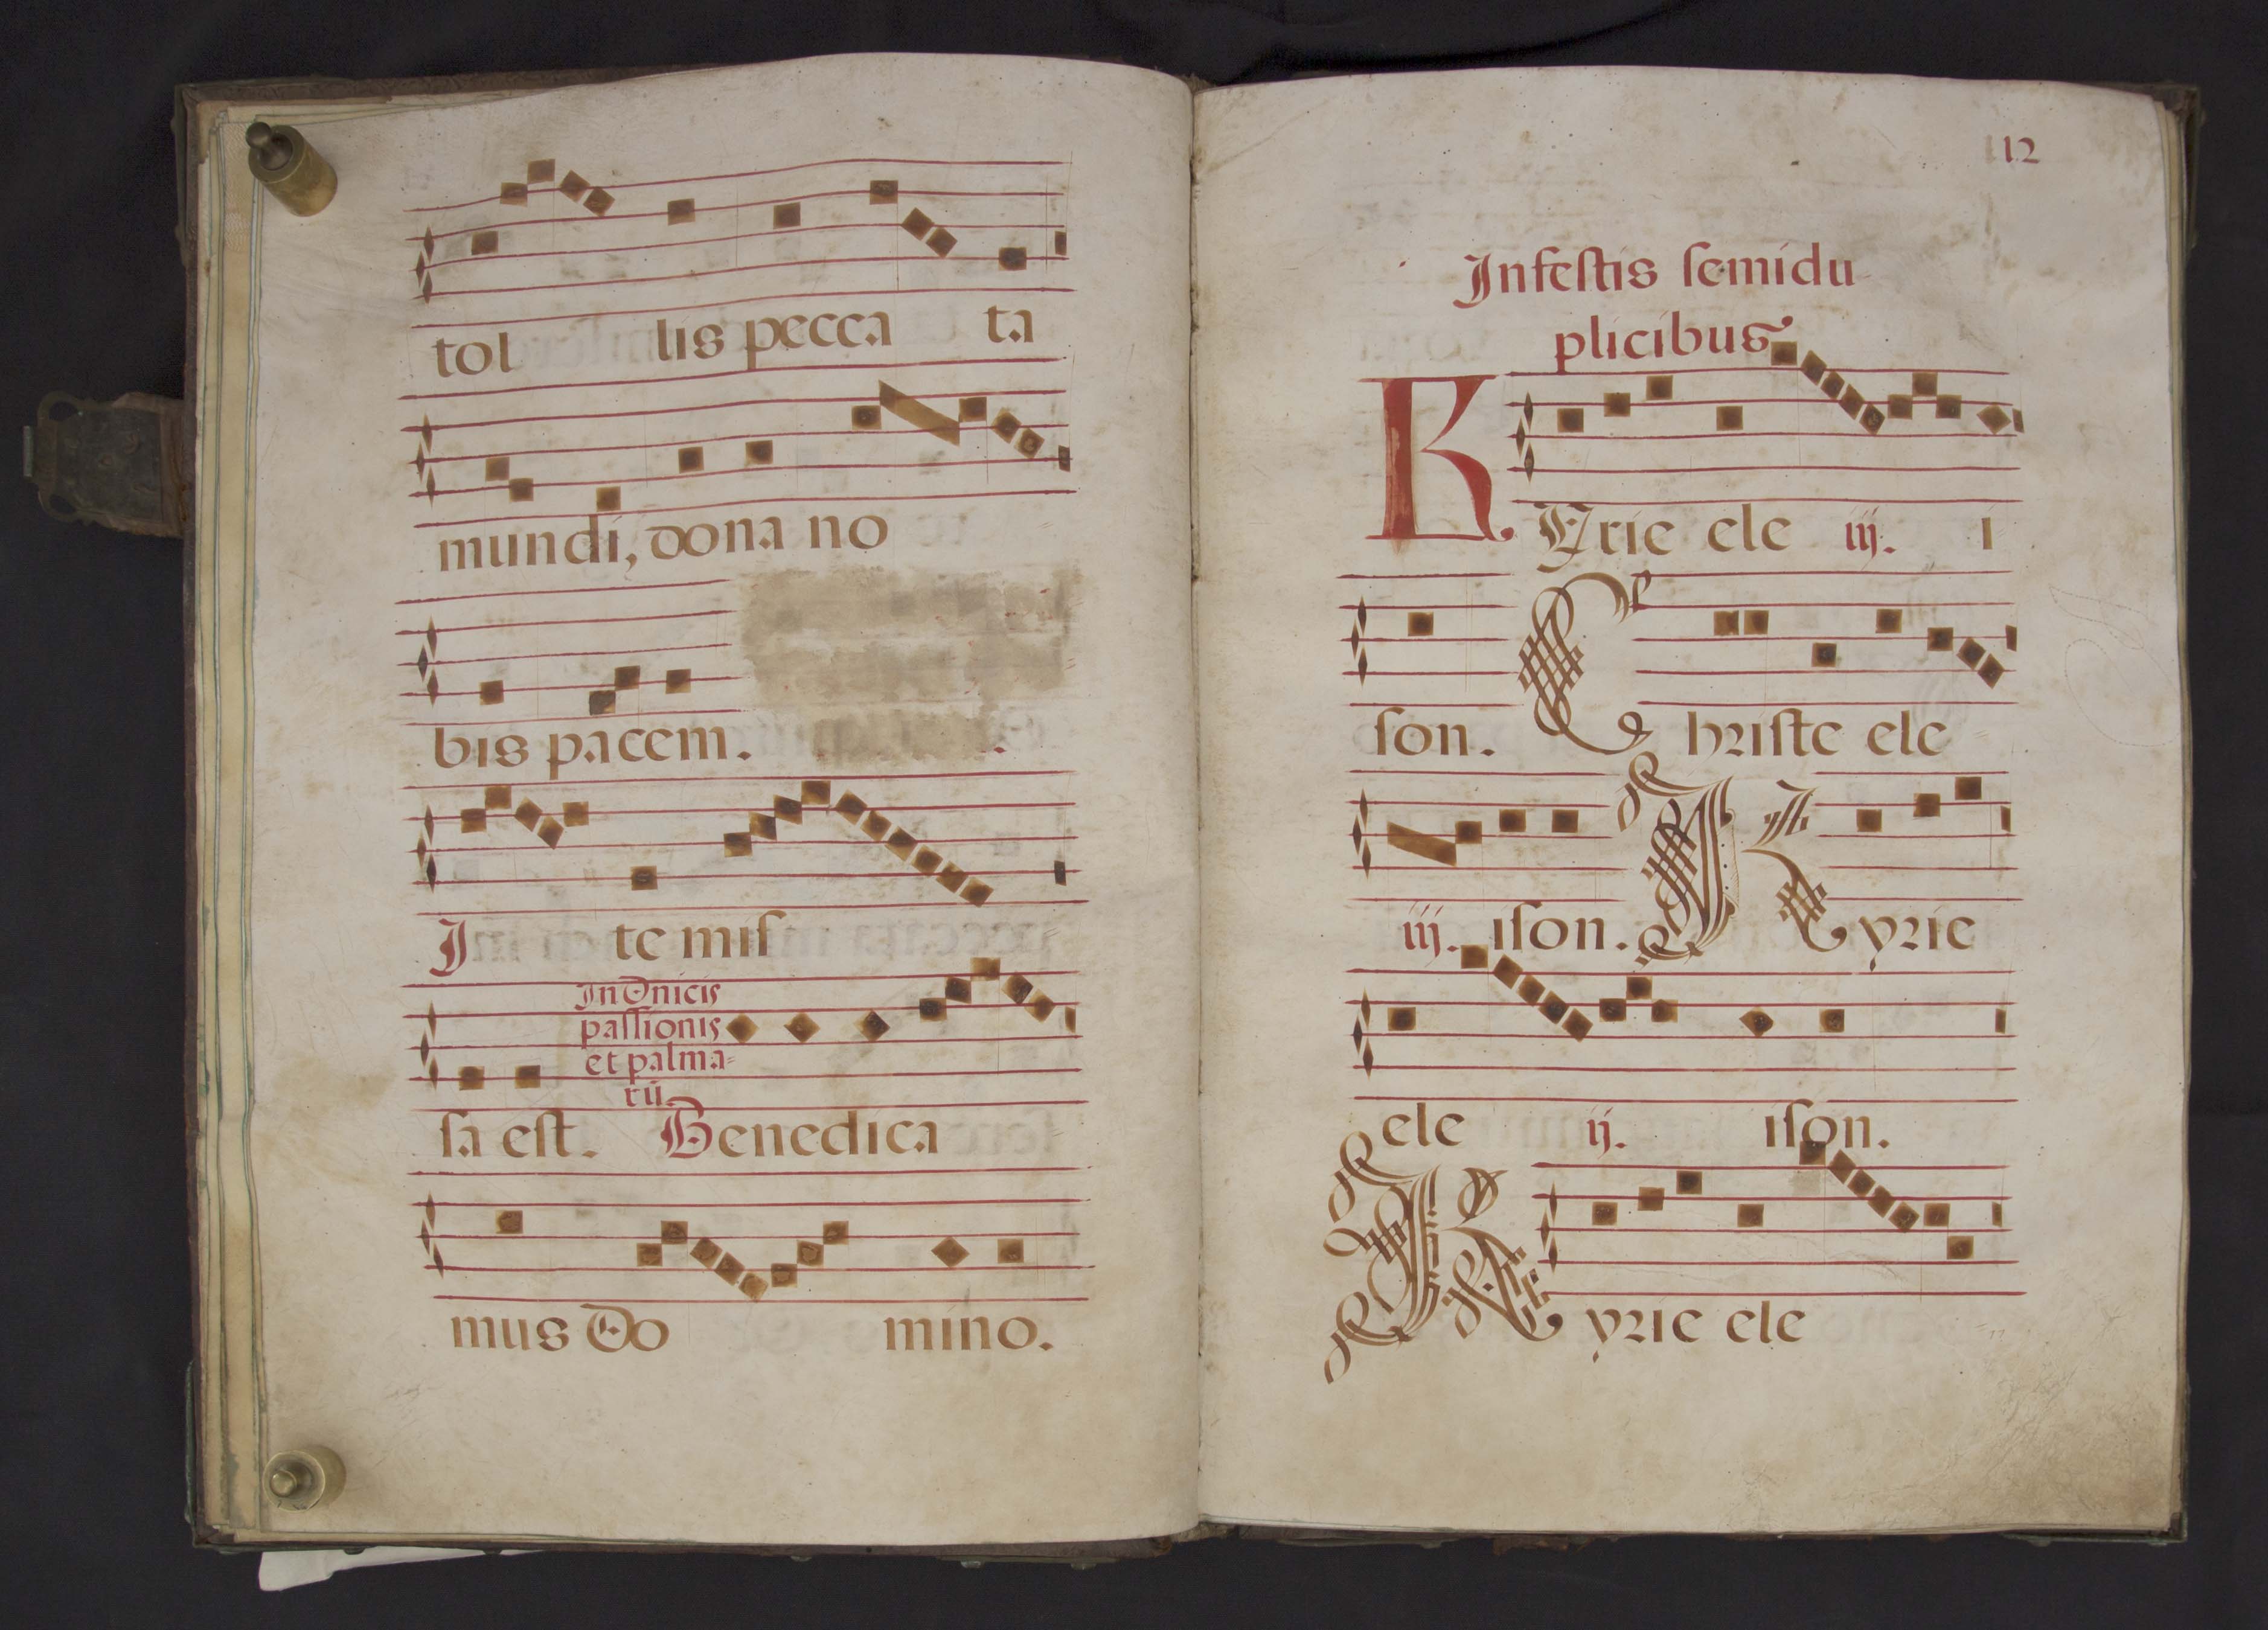 tol lis pecca ta
mundi, dona no
bis pacem.
Ite miſ
In Dnicis
paſſionis
et palma-
rū.
ſa eſt. Benedica
mus Do mino.
12
Infeſtis ſemidu
plicibus
KYrie ele iij. i
ſon. Chriſte ele
iij. iſon. Kyrie
ele ij. iſon.
Kyrie ele